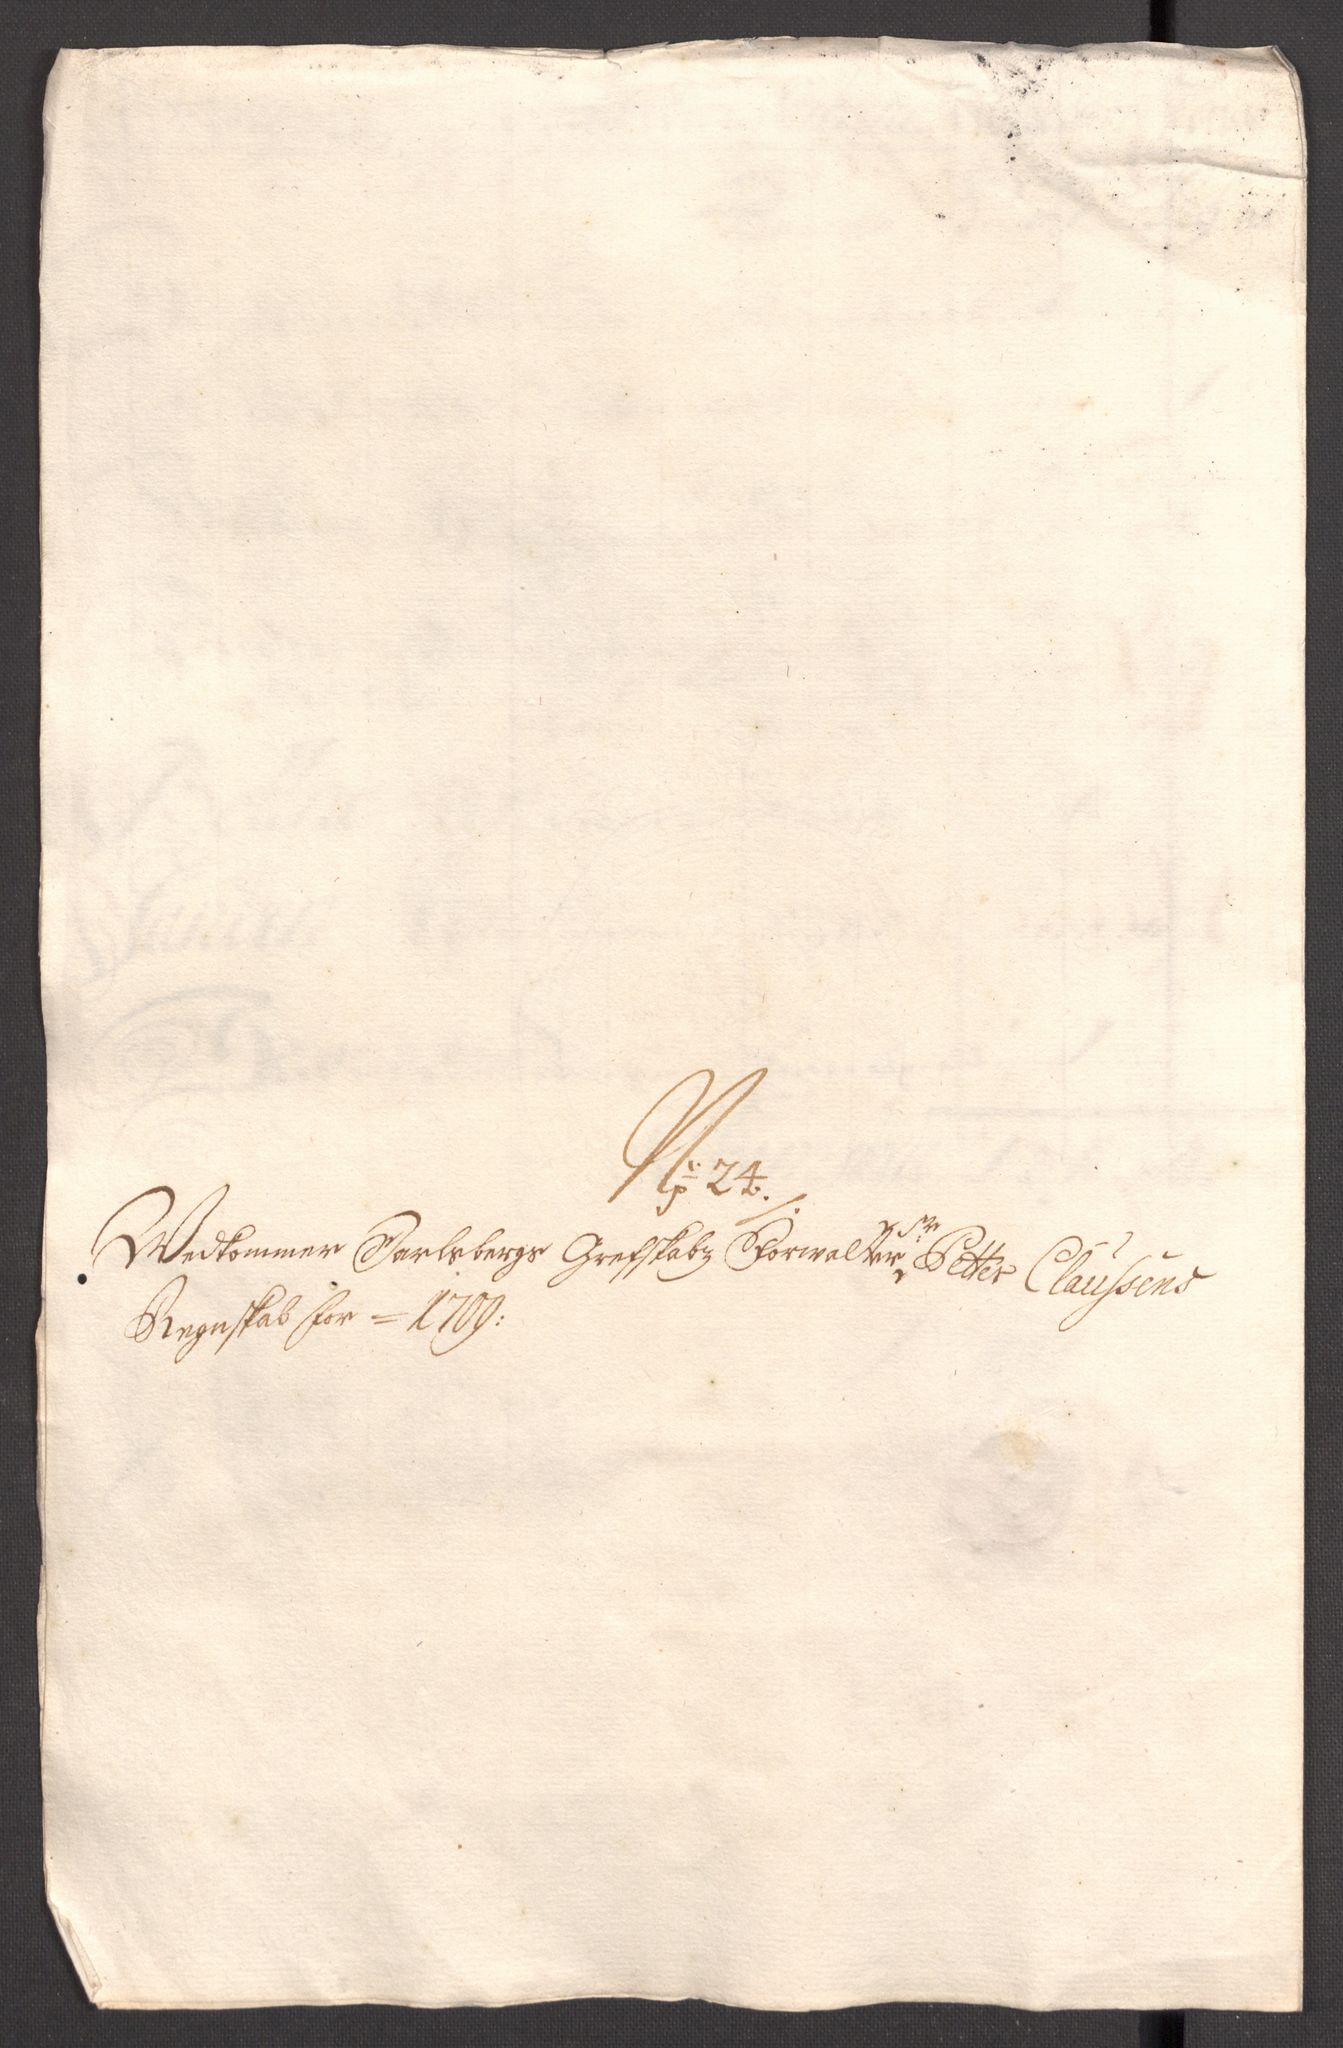 No 24.
Wedkommer Jarlsbergs Grefskabz Forwalter Sr Petter Claussens
Regnskab for = 1709: